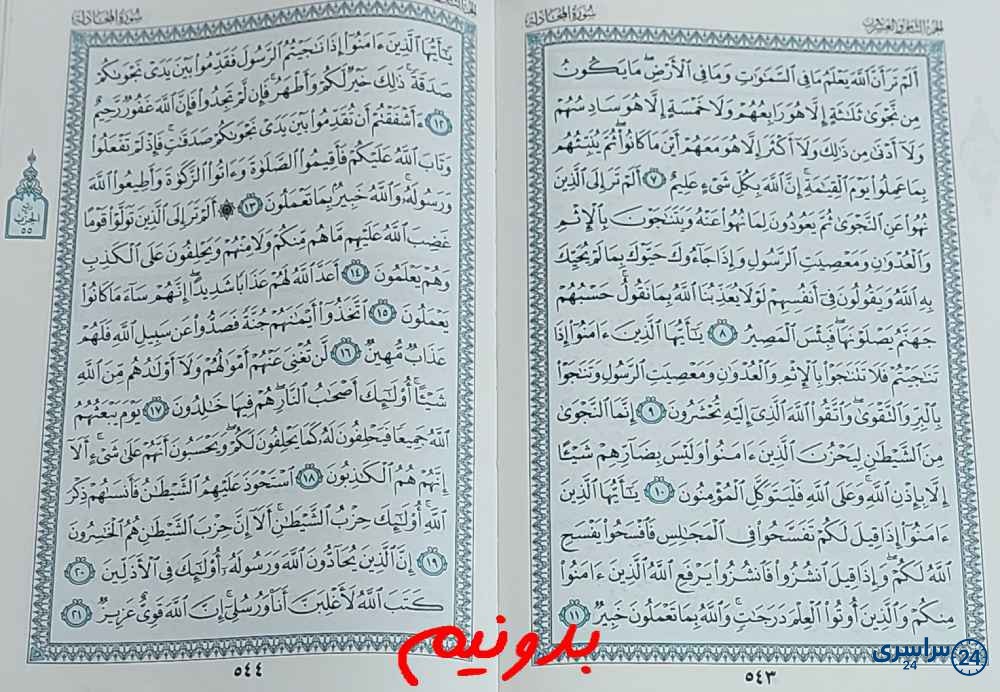 الجزء الثامن والعشرون
سورة المجادلة
أَلَمْ تَرَ أَنَّ ٱللَّهَ يَعْلَمُ مَا فِى ٱلسَّمَٰوَٰتِ وَمَا فِى ٱلْأَرْضِ ۖ مَا يَكُونُ
مِن نَّجْوَىٰ ثَلَٰثَةٍ إِلَّا هُوَ رَابِعُهُمْ وَلَا خَمْسَةٍ إِلَّا هُوَ سَادِسُهُمْ
وَلَآ أَدْنَىٰ مِن ذَٰلِكَ وَلَآ أَكْثَرَ إِلَّا هُوَ مَعَهُمْ أَيْنَ مَا كَانُوا۟ ۖ ثُمَّ يُنَبِّئُهُم
بِمَا عَمِلُوا۟ يَوْمَ ٱلْقِيَٰمَةِ ۚ إِنَّ ٱللَّهَ بِكُلِّ شَىْءٍ عَلِيمٌ ٧ أَلَمْ تَرَ إِلَى ٱلَّذِينَ
نُهُوا۟ عَنِ ٱلنَّجْوَىٰ ثُمَّ يَعُودُونَ لِمَا نُهُوا۟ عَنْهُ وَيَتَنَٰجَوْنَ بِٱلْإِثْمِ
وَٱلْعُدْوَٰنِ وَمَعْصِيَتِ ٱلرَّسُولِ وَإِذَا جَآءُوكَ حَيَّوْكَ بِمَا لَمْ يُحَيِّكَ
بِهِ ٱللَّهُ وَيَقُولُونَ فِىٓ أَنفُسِهِمْ لَوْلَا يُعَذِّبُنَا ٱللَّهُ بِمَا نَقُولُ ۚ حَسْبُهُمْ
جَهَنَّمُ يَصْلَوْنَهَا ۖ فَبِئْسَ ٱلْمَصِيرُ ٨ يَٰٓأَيُّهَا ٱلَّذِينَ ءَامَنُوٓا۟ إِذَا
تَنَٰجَيْتُمْ فَلَا تَتَنَٰجَوْا۟ بِٱلْإِثْمِ وَٱلْعُدْوَٰنِ وَمَعْصِيَتِ ٱلرَّسُولِ وَتَنَٰجَوْا۟
بِٱلْبِرِّ وَٱلتَّقْوَىٰ ۖ وَٱتَّقُوا۟ ٱللَّهَ ٱلَّذِىٓ إِلَيْهِ تُحْشَرُونَ ٩ إِنَّمَا ٱلنَّجْوَىٰ
مِنَ ٱلشَّيْطَٰنِ لِيَحْزُنَ ٱلَّذِينَ ءَامَنُوا۟ وَلَيْسَ بِضَآرِّهِمْ شَيْـًٔا
إِلَّا بِإِذْنِ ٱللَّهِ ۚ وَعَلَى ٱللَّهِ فَلْيَتَوَكَّلِ ٱلْمُؤْمِنُونَ ١٠ يَٰٓأَيُّهَا ٱلَّذِينَ
ءَامَنُوٓا۟ إِذَا قِيلَ لَكُمْ تَفَسَّحُوا۟ فِى ٱلْمَجَٰلِسِ فَٱفْسَحُوا۟ يَفْسَحِ
ٱللَّهُ لَكُمْ ۖ وَإِذَا قِيلَ ٱنشُزُوا۟ فَٱنشُزُوا۟ يَرْفَعِ ٱللَّهُ ٱلَّذِينَ ءَامَنُوا۟
مِنكُمْ وَٱلَّذِينَ أُوتُوا۟ ٱلْعِلْمَ دَرَجَٰتٍ ۚ وَٱللَّهُ بِمَا تَعْمَلُونَ خَبِيرٌ ١١
٥٤٣
سورة المجادلة
يَٰٓأَيُّهَا ٱلَّذِينَ ءَامَنُوٓا۟ إِذَا نَٰجَيْتُمُ ٱلرَّسُولَ فَقَدِّمُوا۟ بَيْنَ يَدَىْ نَجْوَىٰكُمْ
صَدَقَةً ۚ ذَٰلِكَ خَيْرٌ لَّكُمْ وَأَطْهَرُ ۚ فَإِن لَّمْ تَجِدُوا۟ فَإِنَّ ٱللَّهَ غَفُورٌ رَّحِيمٌ
١٢ ءَأَشْفَقْتُمْ أَن تُقَدِّمُوا۟ بَيْنَ يَدَىْ نَجْوَىٰكُمْ صَدَقَٰتٍ ۚ فَإِذْ لَمْ تَفْعَلُوا۟
وَتَابَ ٱللَّهُ عَلَيْكُمْ فَأَقِيمُوا۟ ٱلصَّلَوٰةَ وَءَاتُوا۟ ٱلزَّكَوٰةَ وَأَطِيعُوا۟ ٱللَّهَ
وَرَسُولَهُۥ ۚ وَٱللَّهُ خَبِيرٌۢ بِمَا تَعْمَلُونَ ١٣ ۞ أَلَمْ تَرَ إِلَى ٱلَّذِينَ تَوَلَّوْا۟ قَوْمًا
غَضِبَ ٱللَّهُ عَلَيْهِم مَّا هُم مِّنكُمْ وَلَا مِنْهُمْ وَيَحْلِفُونَ عَلَى ٱلْكَذِبِ
وَهُمْ يَعْلَمُونَ ١٤ أَعَدَّ ٱللَّهُ لَهُمْ عَذَابًا شَدِيدًا ۖ إِنَّهُمْ سَآءَ مَا كَانُوا۟
يَعْمَلُونَ ١٥ ٱتَّخَذُوٓا۟ أَيْمَٰنَهُمْ جُنَّةً فَصَدُّوا۟ عَن سَبِيلِ ٱللَّهِ فَلَهُمْ
عَذَابٌ مُّهِينٌ ١٦ لَّن تُغْنِىَ عَنْهُمْ أَمْوَٰلُهُمْ وَلَآ أَوْلَٰدُهُم مِّنَ ٱللَّهِ
شَيْـًٔا ۚ أُو۟لَٰٓئِكَ أَصْحَٰبُ ٱلنَّارِ ۖ هُمْ فِيهَا خَٰلِدُونَ ١٧ يَوْمَ يَبْعَثُهُمُ
ٱللَّهُ جَمِيعًا فَيَحْلِفُونَ لَهُۥ كَمَا يَحْلِفُونَ لَكُمْ ۖ وَيَحْسَبُونَ أَنَّهُمْ عَلَىٰ شَىْءٍ ۚ أَلَآ
إِنَّهُمْ هُمُ ٱلْكَٰذِبُونَ ١٨ ٱسْتَحْوَذَ عَلَيْهِمُ ٱلشَّيْطَٰنُ فَأَنسَىٰهُمْ ذِكْرَ
ٱللَّهِ ۚ أُو۟لَٰٓئِكَ حِزْبُ ٱلشَّيْطَٰنِ ۚ أَلَآ إِنَّ حِزْبَ ٱلشَّيْطَٰنِ هُمُ ٱلْخَٰسِرُونَ
١٩ إِنَّ ٱلَّذِينَ يُحَآدُّونَ ٱللَّهَ وَرَسُولَهُۥٓ أُو۟لَٰٓئِكَ فِى ٱلْأَذَلِّينَ ٢٠
كَتَبَ ٱللَّهُ لَأَغْلِبَنَّ أَنَا۠ وَرُسُلِىٓ ۚ إِنَّ ٱللَّهَ قَوِىٌّ عَزِيزٌ ٢١
الحزب
٥٥
٥٤٤
بدونیم
سراسری
24
24